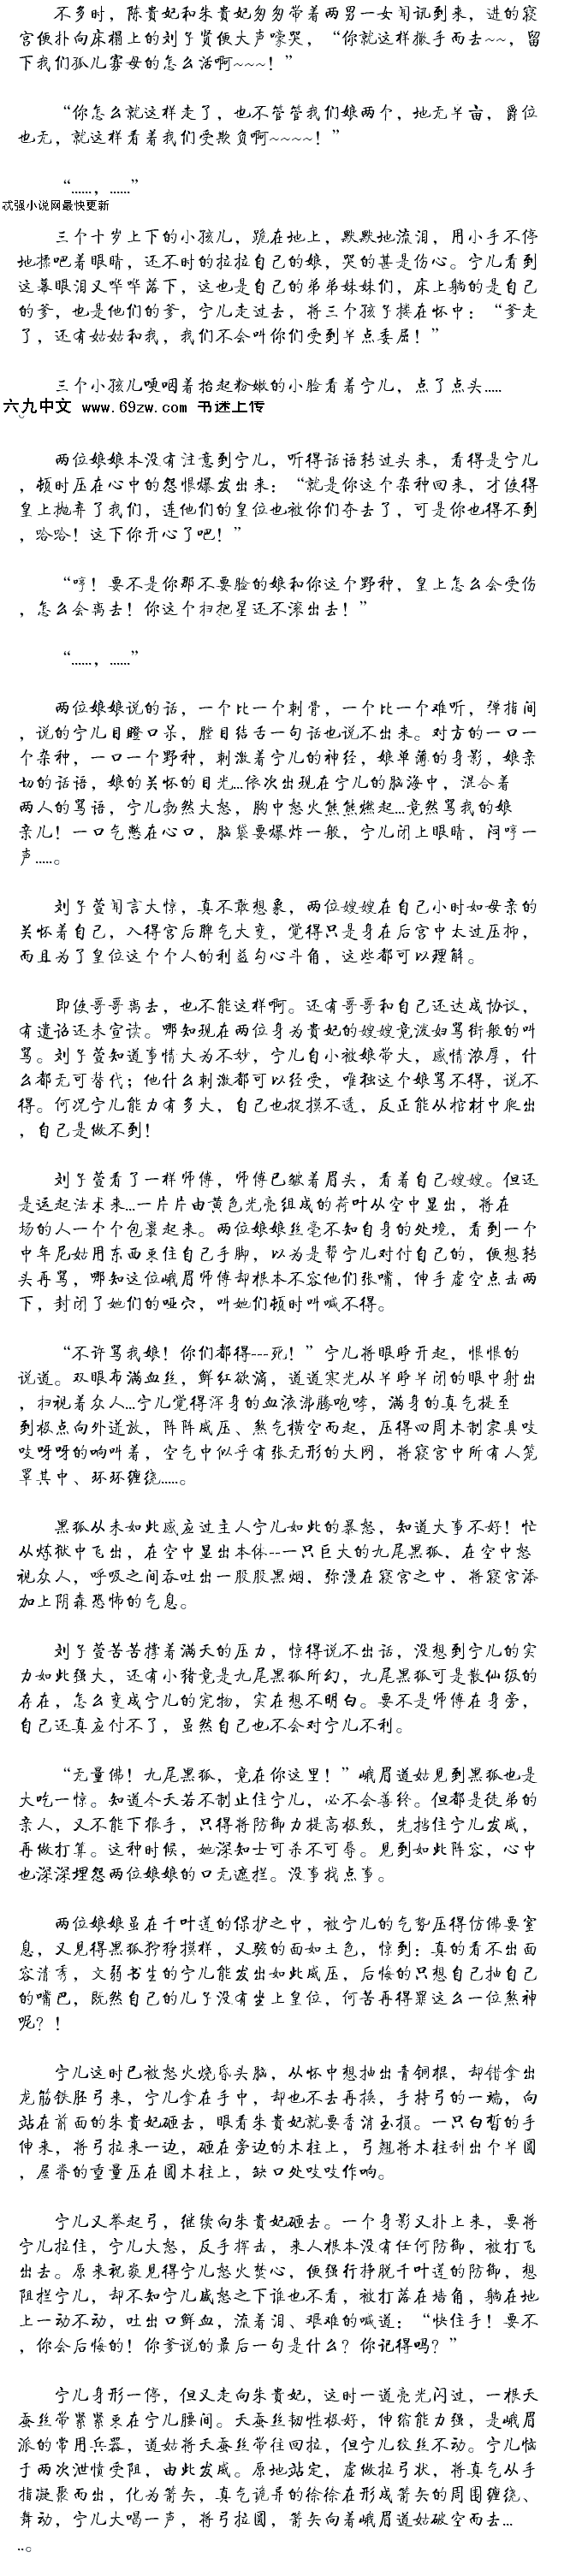 不多时，陈贵妃和朱贵妃匆匆带着两男一女闻讯到来，进的寝
宫便扑向床榻上的刘子贤便大声嚎哭，“你就这样撒手而去~~，留
下我们孤儿寡母的怎么活啊~~~！”
“你怎么就这样走了，也不管管我们娘两个，地无半亩，爵位
也无，就这样看着我们受欺负啊~~~~！”
“……，……”
最快更新
三个十岁上下的小孩儿，跪在地上，默默地流泪，用小手不停
地揉吧着眼睛，还不时的拉拉自己的娘，哭的甚是伤心。宁儿看到
这幕眼泪又哗哗落下，这也是自己的弟弟妹妹们，床上躺的是自己
的爹，也是他们的爹，宁儿走过去，将三个孩子搂在怀中：“爹走
了，还有姑姑和我，我们不会叫你们受到半点委屈！”
三个小孩儿哽咽着抬起粉嫩的小脸看着宁儿，点了点头……
六九中文 www.69zw.com 书迷上传
。
两位娘娘本没有注意到宁儿，听得话语转过头来，看得是宁儿
，顿时压在心中的怨恨爆发出来：“就是你这个杂种回来，才使得
皇上抛弃了我们，连他们的皇位也被你们夺去了，可是你也得不到
，哈哈！这下你开心了吧！”
“哼！要不是你那不要脸的娘和你这个野种，皇上怎么会受伤
，怎么会离去！你这个扫把星还不滚出去！”
“……，……”
两位娘娘说的话，一个比一个刺骨，一个比一个难听，弹指间
，说的宁儿目瞪口呆，瞠目结舌一句话也说不出来。对方的一口一
个杂种，一口一个野种，刺激着宁儿的神经，娘单薄的身影，娘亲
切的话语，娘的关怀的目光…依次出现在宁儿的脑海中，混合着
两人的骂语，宁儿勃然大怒，胸中怒火熊熊燃起…竟然骂我的娘
亲儿！一口气憋在心口，脑袋要爆炸一般，宁儿闭上眼睛，闷哼一
声……。
刘子萱闻言大惊，真不敢想象，两位嫂嫂在自己小时如母亲的
关怀着自己，入得宫后脾气大变，觉得只是身在后宫中太过压抑，
而且为了皇位这个个人的利益勾心斗角，这些都可以理解。
即使哥哥离去，也不能这样啊。还有哥哥和自己还达成协议，
有遗诏还未宣读。哪知现在两位身为贵妃的嫂嫂竟泼妇骂街般的叫
骂。刘子萱知道事情大为不妙，宁儿自小被娘带大，感情浓厚，什
么都无可替代；他什么刺激都可以经受，唯独这个娘骂不得，说不
得。何况宁儿能力有多大，自己也捉摸不透，反正能从棺材中爬出
，自己是做不到！
刘子萱看了一样师傅，师傅已皱着眉头，看着自己嫂嫂。但还
是运起法术来…一片片由黄色光亮组成的荷叶从空中显出，将在
场的人一个个包裹起来。两位娘娘丝毫不知自身的处境，看到一个
中年尼姑用东西束住自己手脚，以为是帮宁儿对付自己的，便想转
头再骂，哪知这位峨眉师傅却根本不容他们张嘴，伸手虚空点击两
下，封闭了她们的哑穴，叫她们顿时叫喊不得。
“不许骂我娘！你们都得---死！”宁儿将眼睁开起，恨恨的
说道。双眼布满血丝，鲜红欲滴，道道寒光从半睁半闭的眼中射出
，扫视着众人…宁儿觉得浑身的血液沸腾咆哮，满身的真气提至
到极点向外迸放，阵阵威压、煞气横空而起，压得四周木制家具吱
吱呀呀的响叫着，空气中似乎有张无形的大网，将寝宫中所有人笼
罩其中、环环缠绕……。
黑狐从未如此感应过主人宁儿如此的暴怒，知道大事不好！忙
从炼狱中飞出，在空中显出本体--一只巨大的九尾黑狐，在空中怒
视众人，呼吸之间吞吐出一股股黑烟，弥漫在寝宫之中，将寝宫添
加上阴森恐怖的气息。
刘子萱苦苦撑着满天的压力，惊得说不出话，没想到宁儿的实
力如此强大，还有小猪竟是九尾黑狐所幻，九尾黑狐可是散仙级的
存在，怎么变成宁儿的宠物，实在想不明白。要不是师傅在身旁，
自己还真应付不了，虽然自己也不会对宁儿不利。
“无量佛！九尾黑狐，竟在你这里！”峨眉道姑见到黑狐也是
大吃一惊。知道今天若不制止住宁儿，必不会善终。但都是徒弟的
亲人，又不能下狠手，只得将防御力提高极致，先挡住宁儿发威，
再做打算。这种时候，她深知士可杀不可辱。见到如此阵容，心中
也深深埋怨两位娘娘的口无遮拦。没事找点事。
两位娘娘虽在千叶莲的保护之中，被宁儿的气势压得仿佛要窒
息，又见得黑狐狰狞摸样，又骇的面如土色，惊到：真的看不出面
容清秀，文弱书生的宁儿能发出如此威压，后悔的只想自己抽自己
的嘴巴，既然自己的儿子没有坐上皇位，何苦再得罪这么一位煞神
呢？！
宁儿这时已被怒火烧昏头脑，从怀中想抽出青铜棍，却错拿出
龙筋铁胚弓来，宁儿拿在手中，却也不去再换，手持弓的一端，向
站在前面的朱贵妃砸去，眼看朱贵妃就要香消玉损。一只白皙的手
伸来，将弓拉来一边，砸在旁边的木柱上，弓翘将木柱刮出个半圆
，屋脊的重量压在圆木柱上，缺口处吱吱作响。
宁儿又举起弓，继续向朱贵妃砸去。一个身影又扑上来，要将
宁儿拉住，宁儿大怒，反手挥击，来人根本没有任何防御，被打飞
出去。原来祝炭见得宁儿怒火焚心，便强行挣脱千叶莲的防御，想
阻拦宁儿，却不知宁儿盛怒之下谁也不看，被打落在墙角，躺在地
上一动不动，吐出口鲜血，流着泪、艰难的喊道：“快住手！要不
，你会后悔的！你爹说的最后一句是什么？你记得吗？”
宁儿身形一停，但又走向朱贵妃，这时一道亮光闪过，一根天
蚕丝带紧紧束在宁儿腰间。天蚕丝韧性极好，伸缩能力强，是峨眉
派的常用兵器，道姑将天蚕丝带往回拉，但宁儿纹丝不动。宁儿恼
于两次泄愤受阻，由此发威。原地站定，虚做拉弓状，将真气从手
指凝聚而出，化为箭矢，真气诡异的徐徐在形成箭矢的周围缠绕、
舞动，宁儿大喝一声，将弓拉圆，箭矢向着峨眉道姑破空而去…
…。